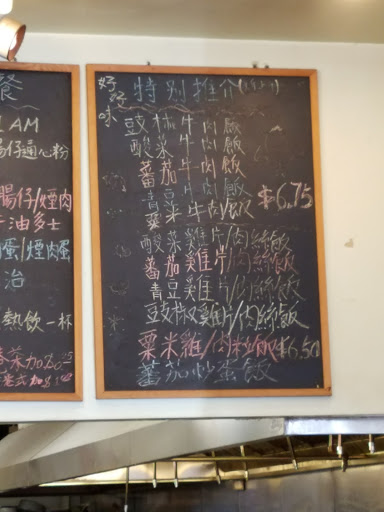 餐
AM
腸仔通心粉
腸仔/煙肉
牛油多士
肉蛋/煙肉蛋
治
熱飲一杯
好
好
味
特别推介
豉椒牛肉飯
酸菜牛肉飯
蕃茄牛肉飯
青豆牛肉飯 $6.75
粟米牛肉飯
酸菜雞片/肉絲飯
蕃茄雞片/肉絲飯
青豆雞片/肉絲飯
豉椒雞片/肉絲飯
粟米雞/肉粒飯 $6.50
蕃茄炒蛋飯